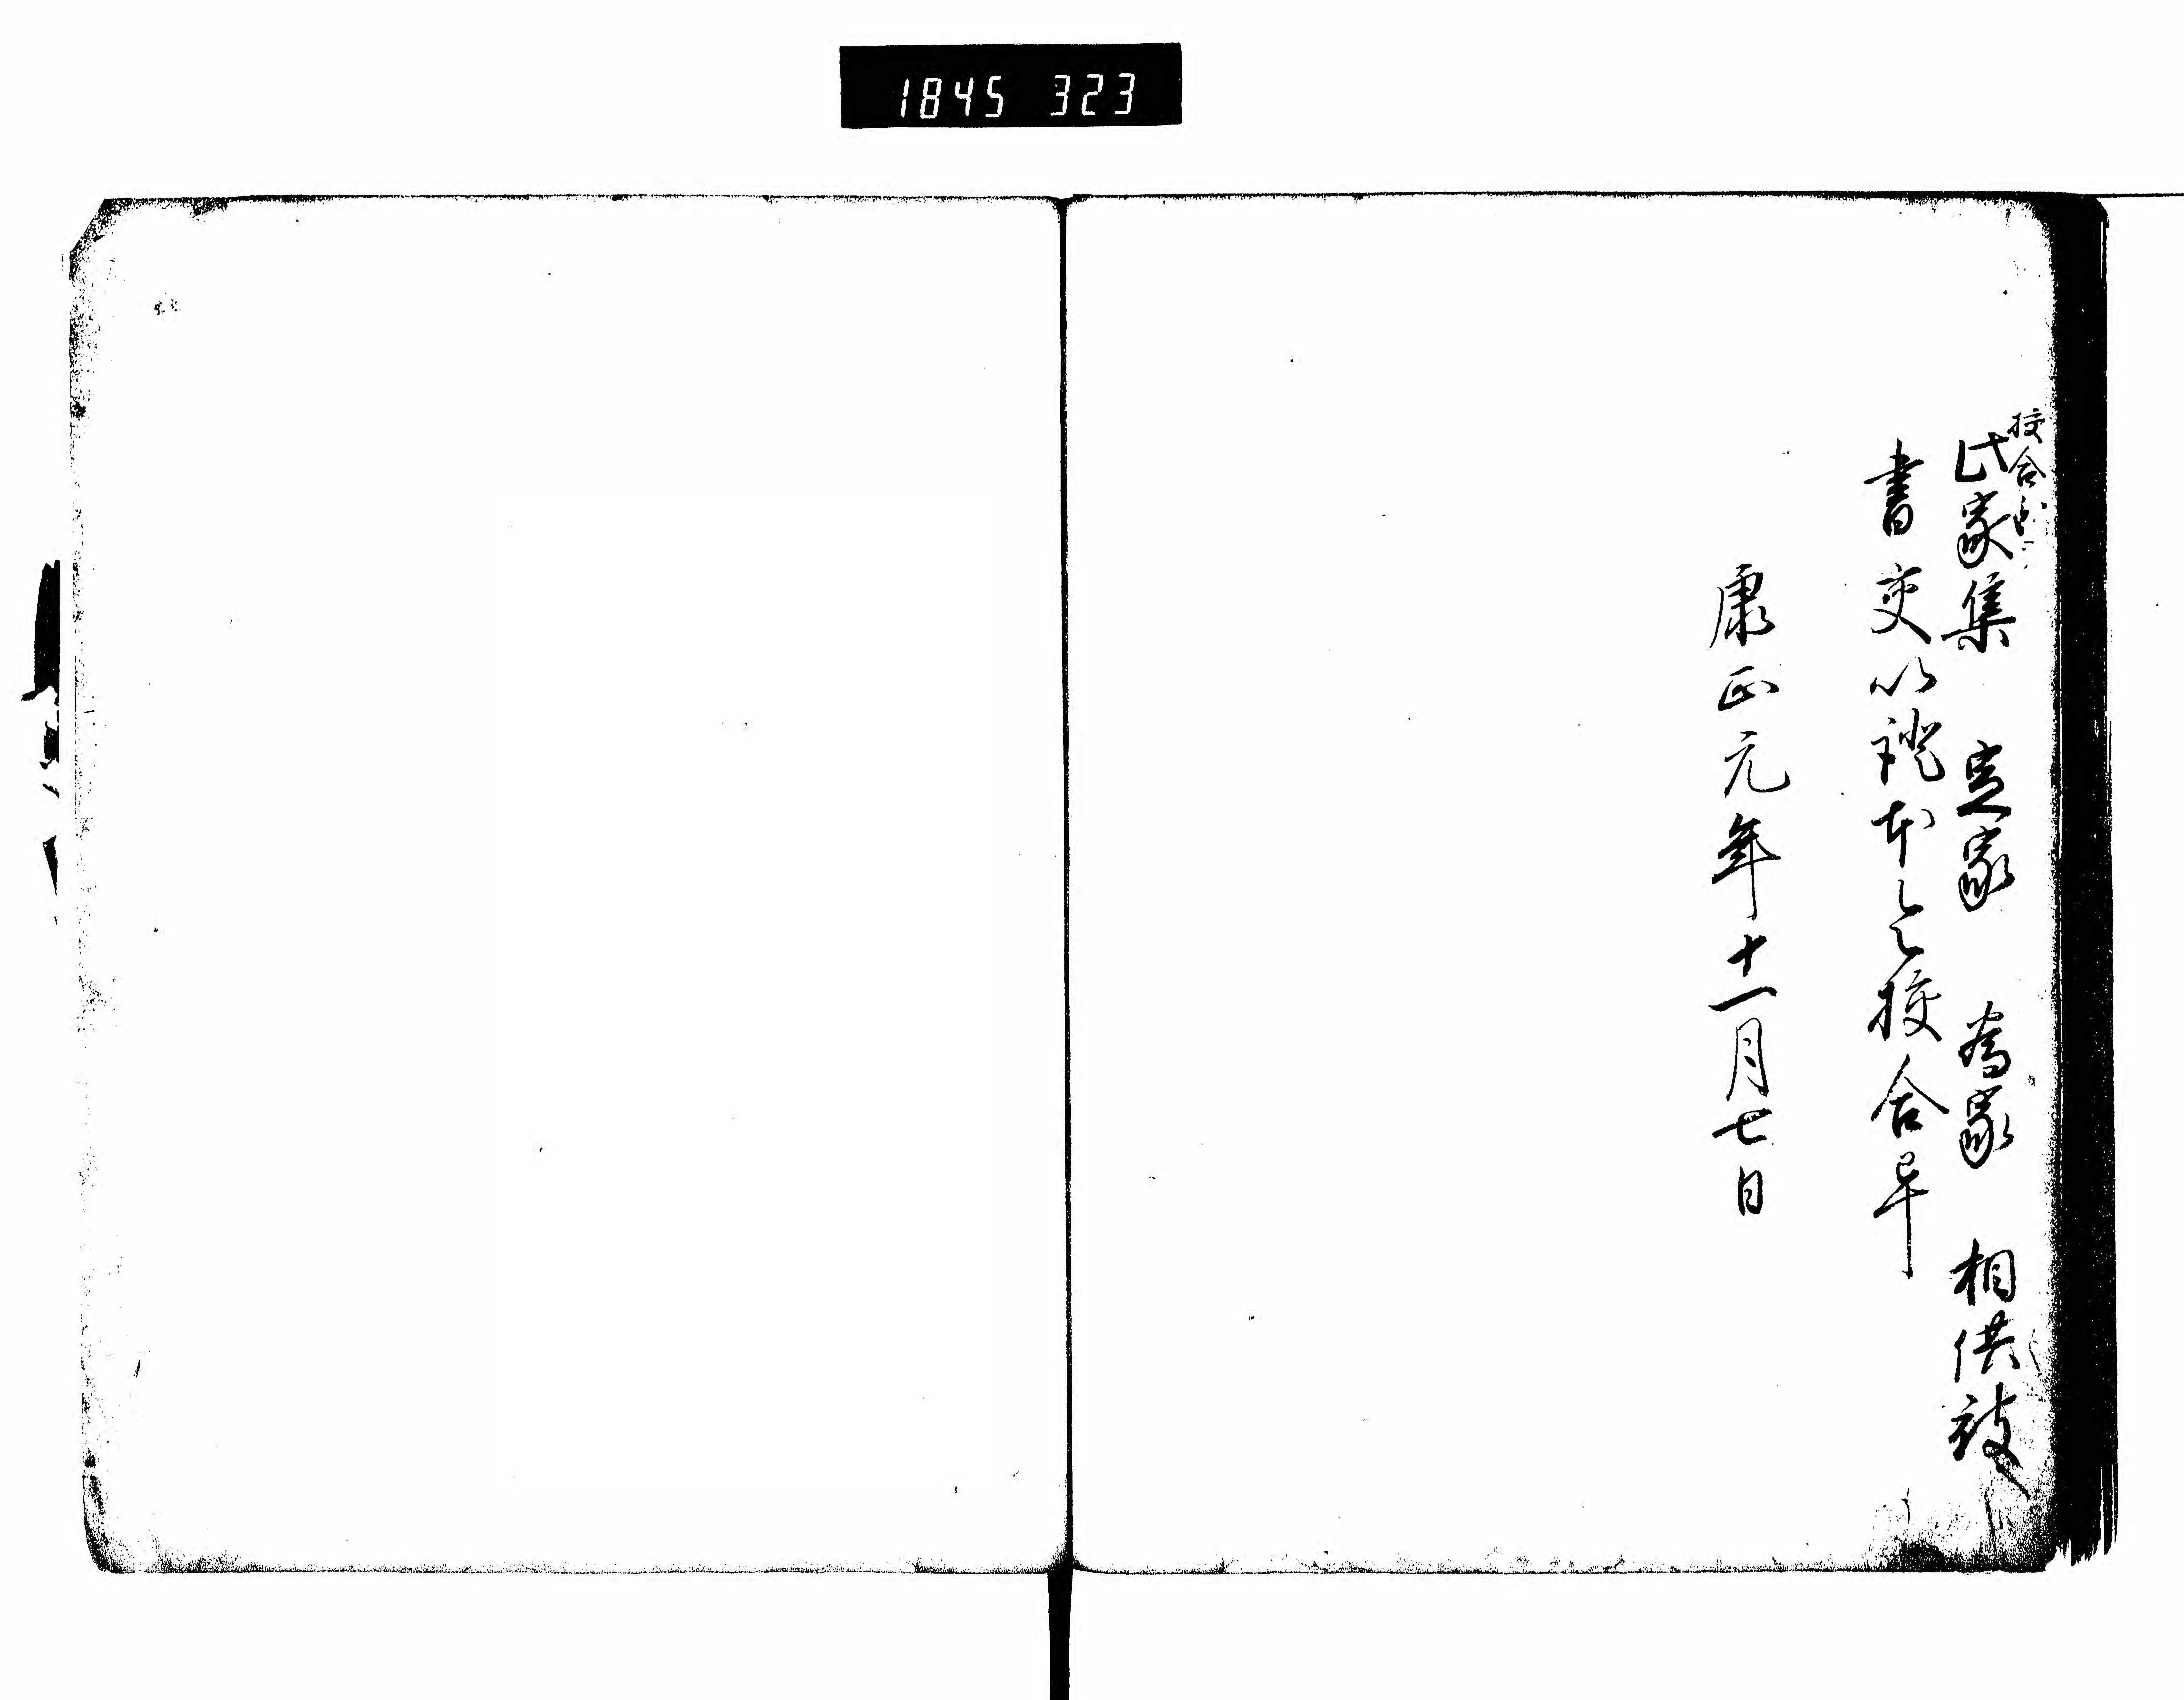 1845 323
校合
此家集 定家 為家 相傳被
書交以證本令校合畢
康正元年十一月七日